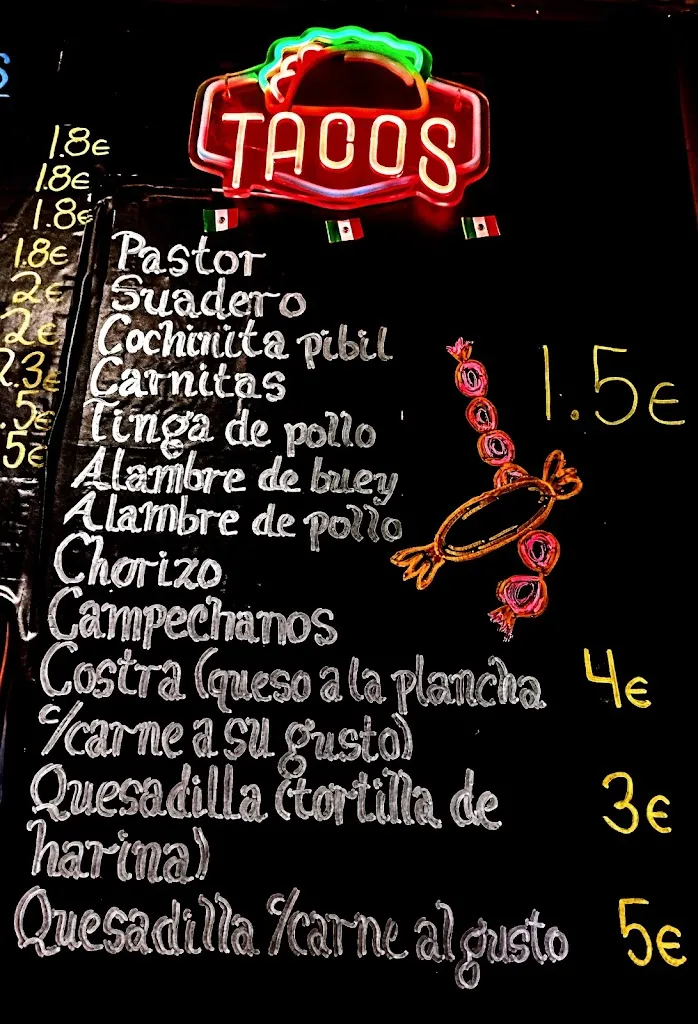 TACOS
1.8€
1.8€
1.8€
1.8€
2€
2€
2.3€
.5€
5€
Pastor
Suadero
Cochinita pibil
Carnitas
1.5€
Tinga de pollo
Alambre de buey
Alambre de pollo
Chorizo
Campechanos
Costra (queso a la plancha 4€
c/carne a su gusto)
Quesadilla (tortilla de 3€
harina)
Quesadilla c/carne al gusto 5€